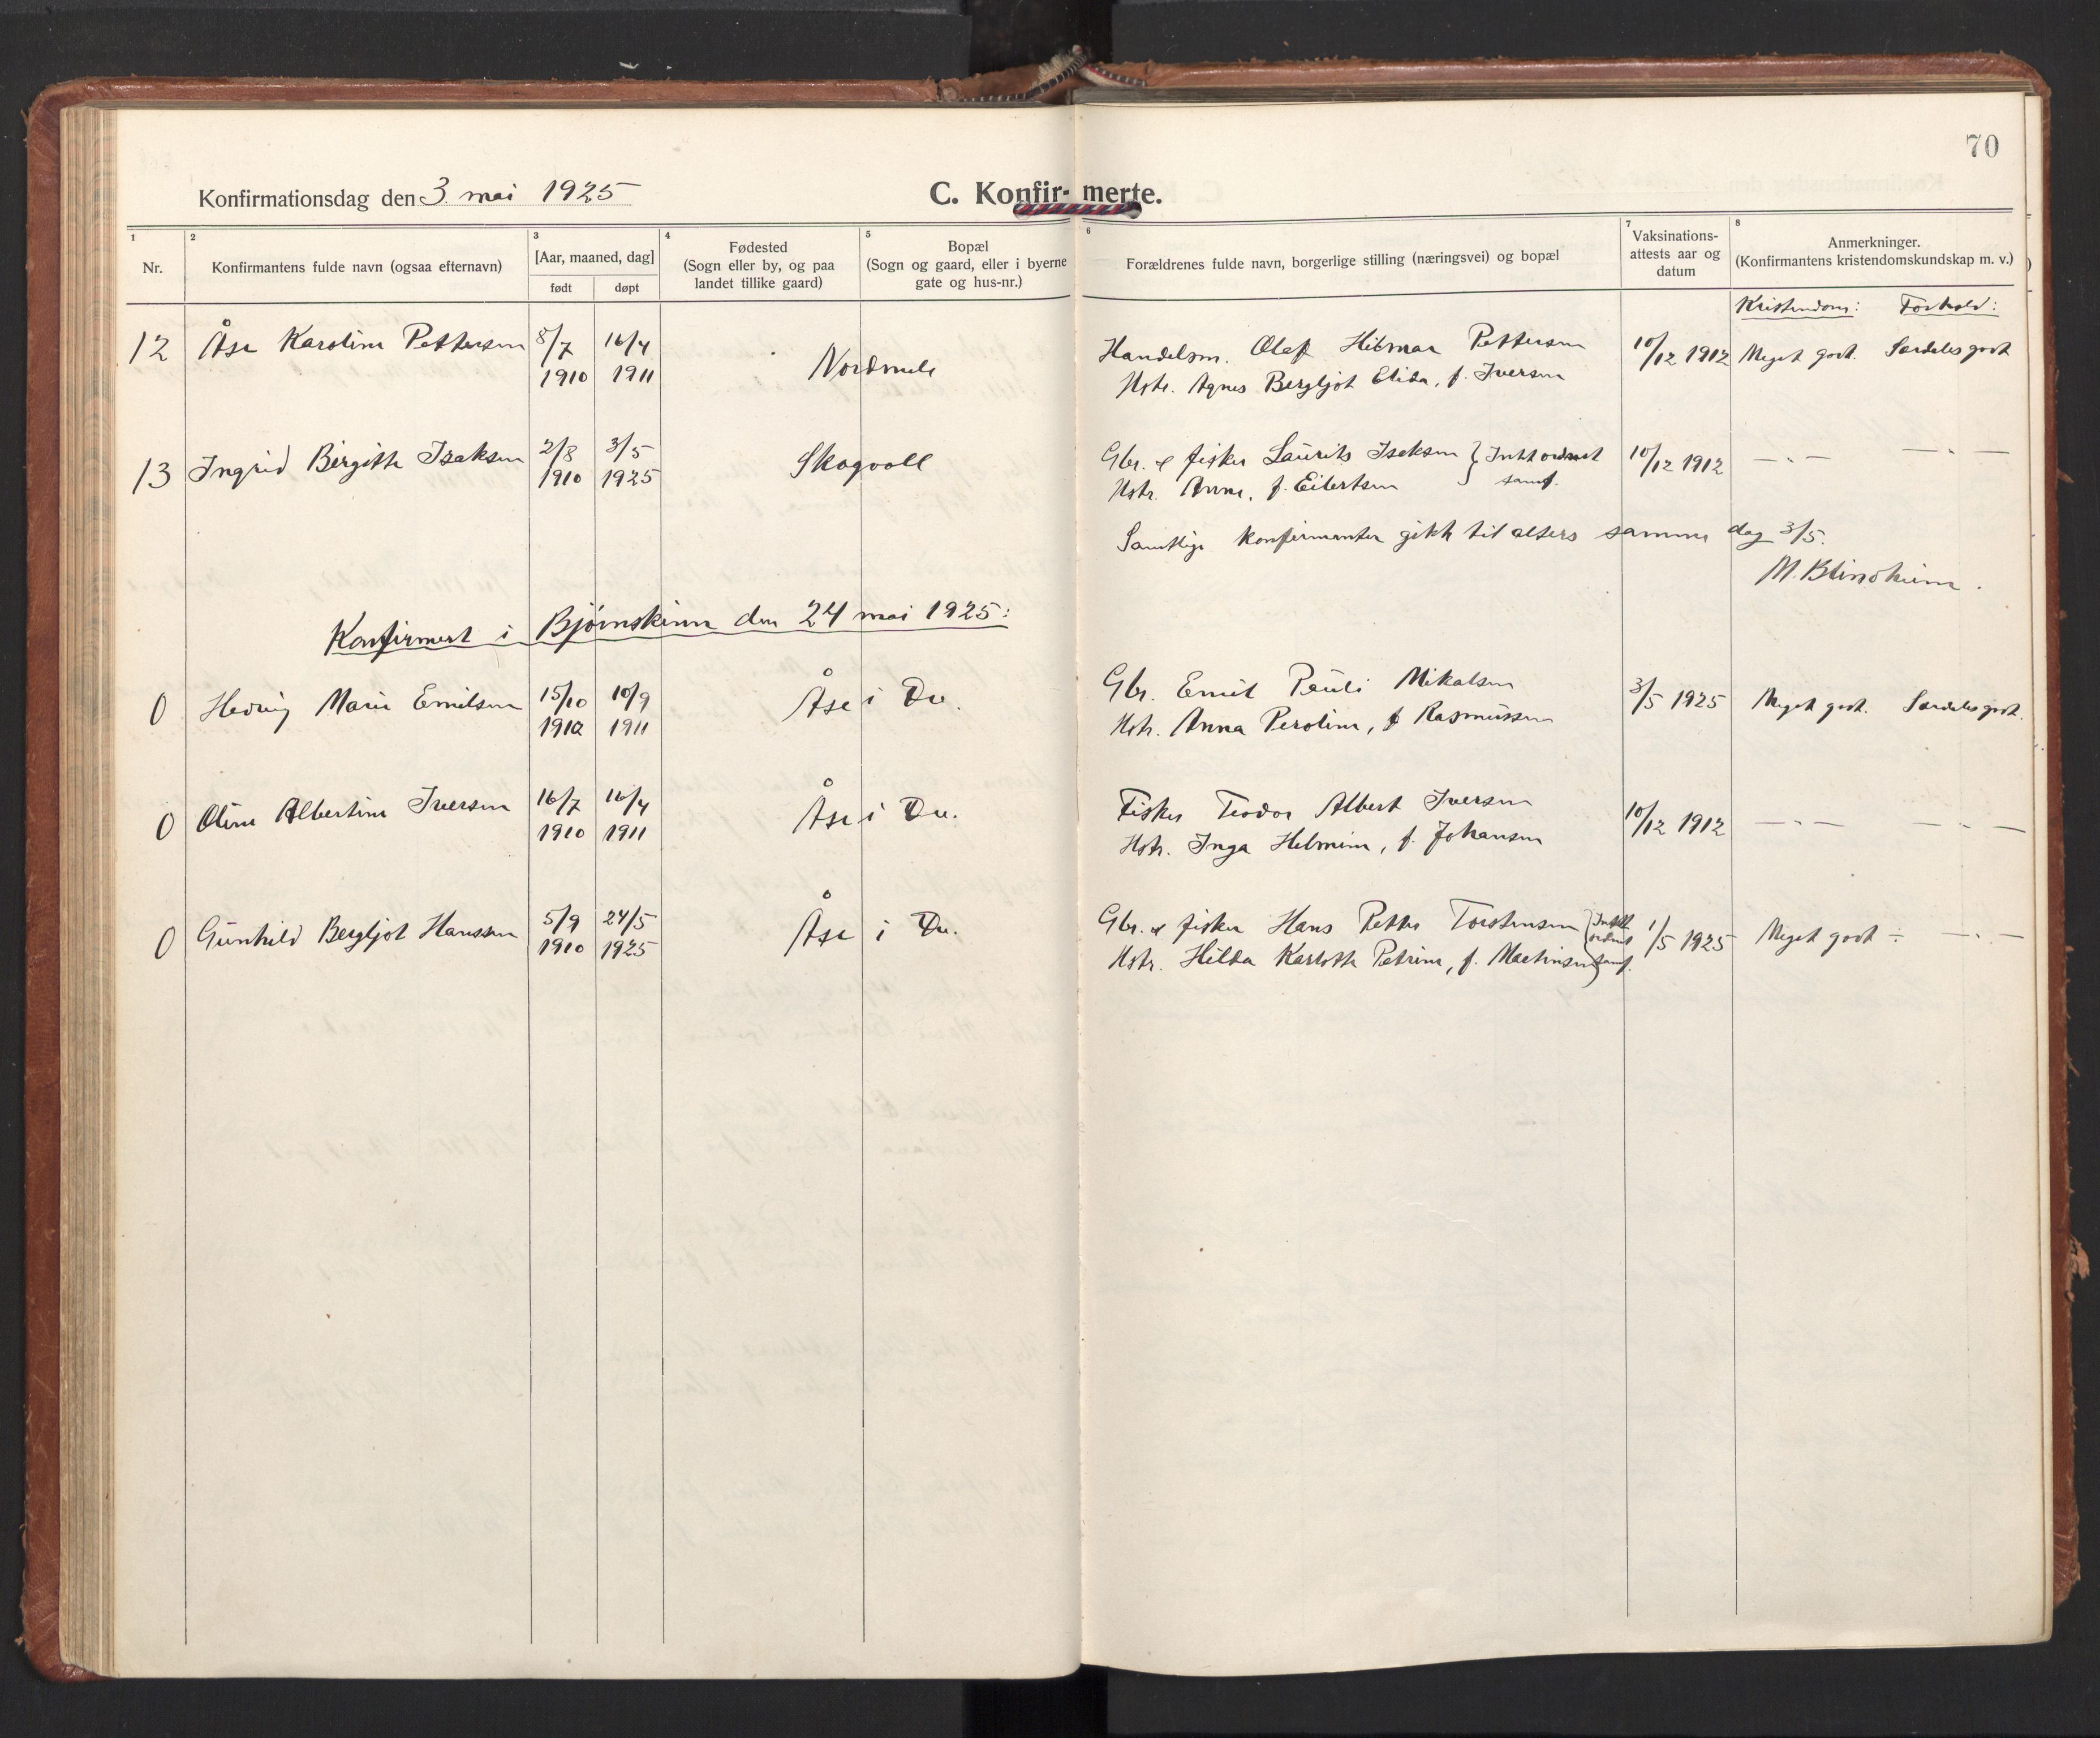 70
Konfirmationsdag den 3. mai 1925
C. Konfir- merte.
1 2 3 4 5 6 7 8
Nr.
Konfirmantens fulde navn (ogsaa efternavn)
[Aar, maaned, dag]
født døpt
Fødested
(Sogn eller by, og paa
landet tillike gaard)
Bopæl
(Sogn og gaard, eller i byerne
gate og hus-nr.)
Forældrenes fulde navn, borgerlige stilling (næringsvei) og bopæl
Vaksinations-
attests aar og
datum
Anmerkninger.
(Konfirmantens kristendomskundskap m. v.)
Kristendom: Forhold:
12 Åse Karoline Pettersen 8/7 16/4 Nordmele Handelsm. Olaf Hilmar Pettersen 10/12 1912 Meget godt. Særdeles godt
1910 1911 Hstr. Agnes Bergljot Elida, f. Iversen
13 Ingrid Birgitte Isaksen 2/8 3/5 Skogvoll Gbr. & fisker Laurits Isaksen } Intet ordnet 10/12 1912 — " — — " —
1910 1925 Hstr. Anna, f. Eilertsen samf.
Samtlige konfirmanter gikk til alters samme dag 3/5.
M. Blindheim.
Konfirmert i Bjørnskinn den 24 mai 1925:
0 Hedvig Marie Emilsen 15/10 10/9 Åse i Dv. Gbr. Emil Pauli Mikalsen 3/5 1925 Meget godt. Særdeles godt.
1910 1911 Hstr. Anna Peroline, f Rasmussen
0 Oline Albertine Iversen 16/7 16/4 Åse i Dv. Fisker Teodor Albert Iversen 10/12 1912 — " — — " —
1910 1911 Hstr. Inga Helmine, f. Johansen
0 Gunhild Bergljot Hanssen 5/9 24/5 Åse i Dv. Gbr. & fisker Hans Petter Torstensen } Intet ordnet samf. 1/5 1925 Meget godt ÷ — " —
1910 1925 Hstr. Hilda Karlotte Petrine, f. Martinsen